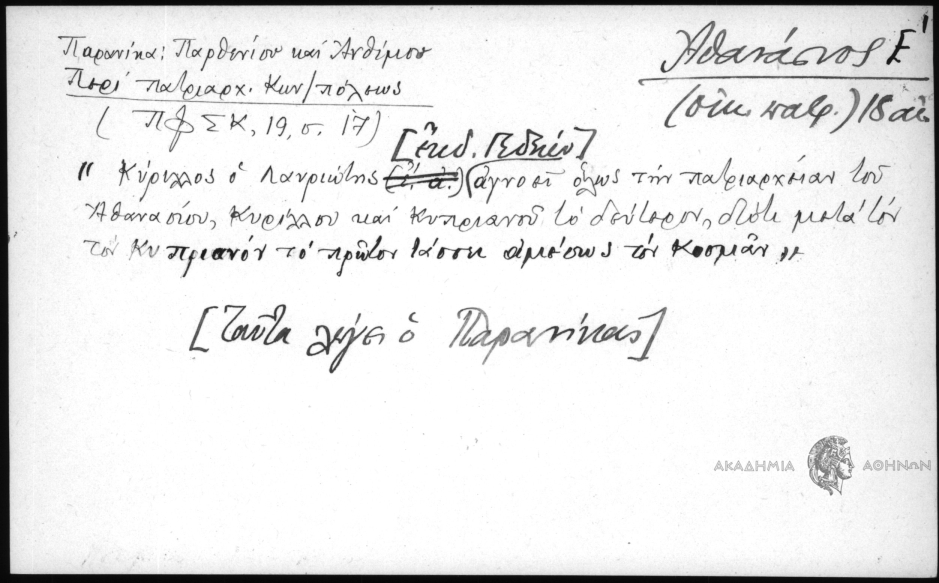 Παρανίκα: Παρθενίου καί Ἀνθίμου
Περί πατριαρχ. Κων/πόλεως
( ΠΦΣΚ, 19, σ. 17)
Ἀθανάσιος Ε΄
(οἰκ. πατρ.) 18 αἰ.
[ἔκδ. Γεδεών]
" Κύριλλος ὁ Λαυριώτης (ἀγνοεῖ ὅλως τήν πατριαρχείαν τοῦ
Ἀθανασίου, Κυρίλλου καί Κυπριανοῦ τό δεύτερον, διότι μετά τόν
τόν Κυπριανόν τό πρῶτον τάσσει ἀμέσως τόν Κοσμᾶν "
[Ταῦτα λέγει ὁ Παρανίκας]
ΑΚΑΔΗΜΙΑ ΑΘΗΝΩΝ